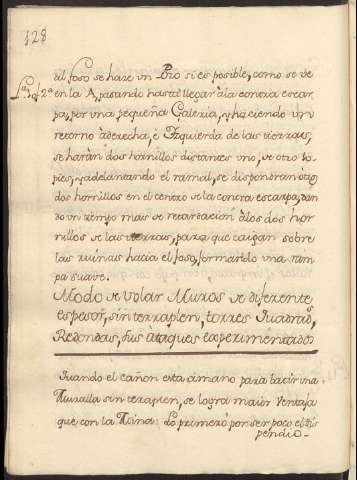 128
del foso se haze un Pozo si es posible, como se ve
Fig.ª 2ª en la A, pasando hasta llegar à la contra escar
pa, por una pequeña Galeria, y haciendo un
retorno à derecha, è Izquierda de las tierras,
se haràn dos hornillos distantes uno, de otro 10.
pies, y adelantando el ramal, se dispondran otros
dos hornillos en el centro de la contra escarpa, dan
do un tiempo mas de retardacion à los dos hor
nillos de las tierras, para que caigan sobre
las ruinas hacia el foso, formando una ram
pa suave.
Modo de volar Muros de diferente
espesor, sin terraplen, torres Quadrad.s
Redondas, sus ataques experimentados
Quando el cañon esta à mano para batir una
Muralla sin teraplen, se logra maior ventaja
que con la Mina: Lo primero por ser poco el dis
pendio